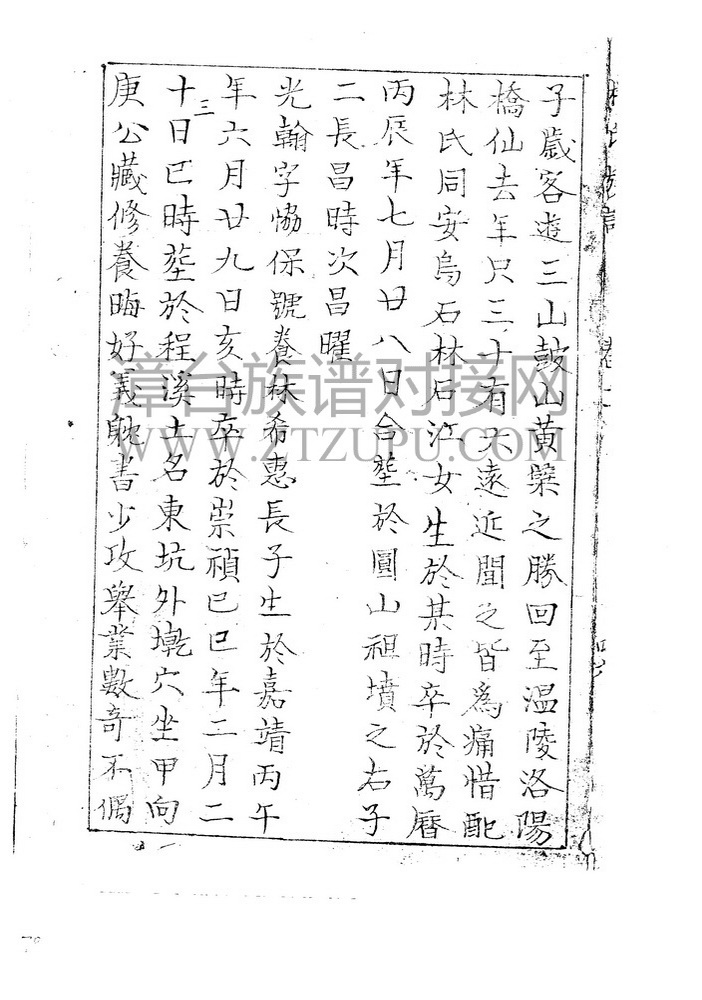 子歲客遊三山鼓山黃檗之勝回至溫陵洛陽
橋仙去年只三十有六遠近聞之皆為痛惜配
林氏同安烏石林石江女生於某時卒於萬曆
丙辰年七月廿八日合塟於圓山祖墳之右子
二長昌時次昌曜
光翰字恊保號養林希惠長子生於嘉靖丙午
年六月廿九日亥時卒於崇禎巳巳年二月二
三
十日巳時塟於程溪土名東坑外墘穴坐甲向
庚公藏修養晦好義躭書少攻舉業數奇不偶
漳台族谱对接网
WWW.ZTZUPU.COM